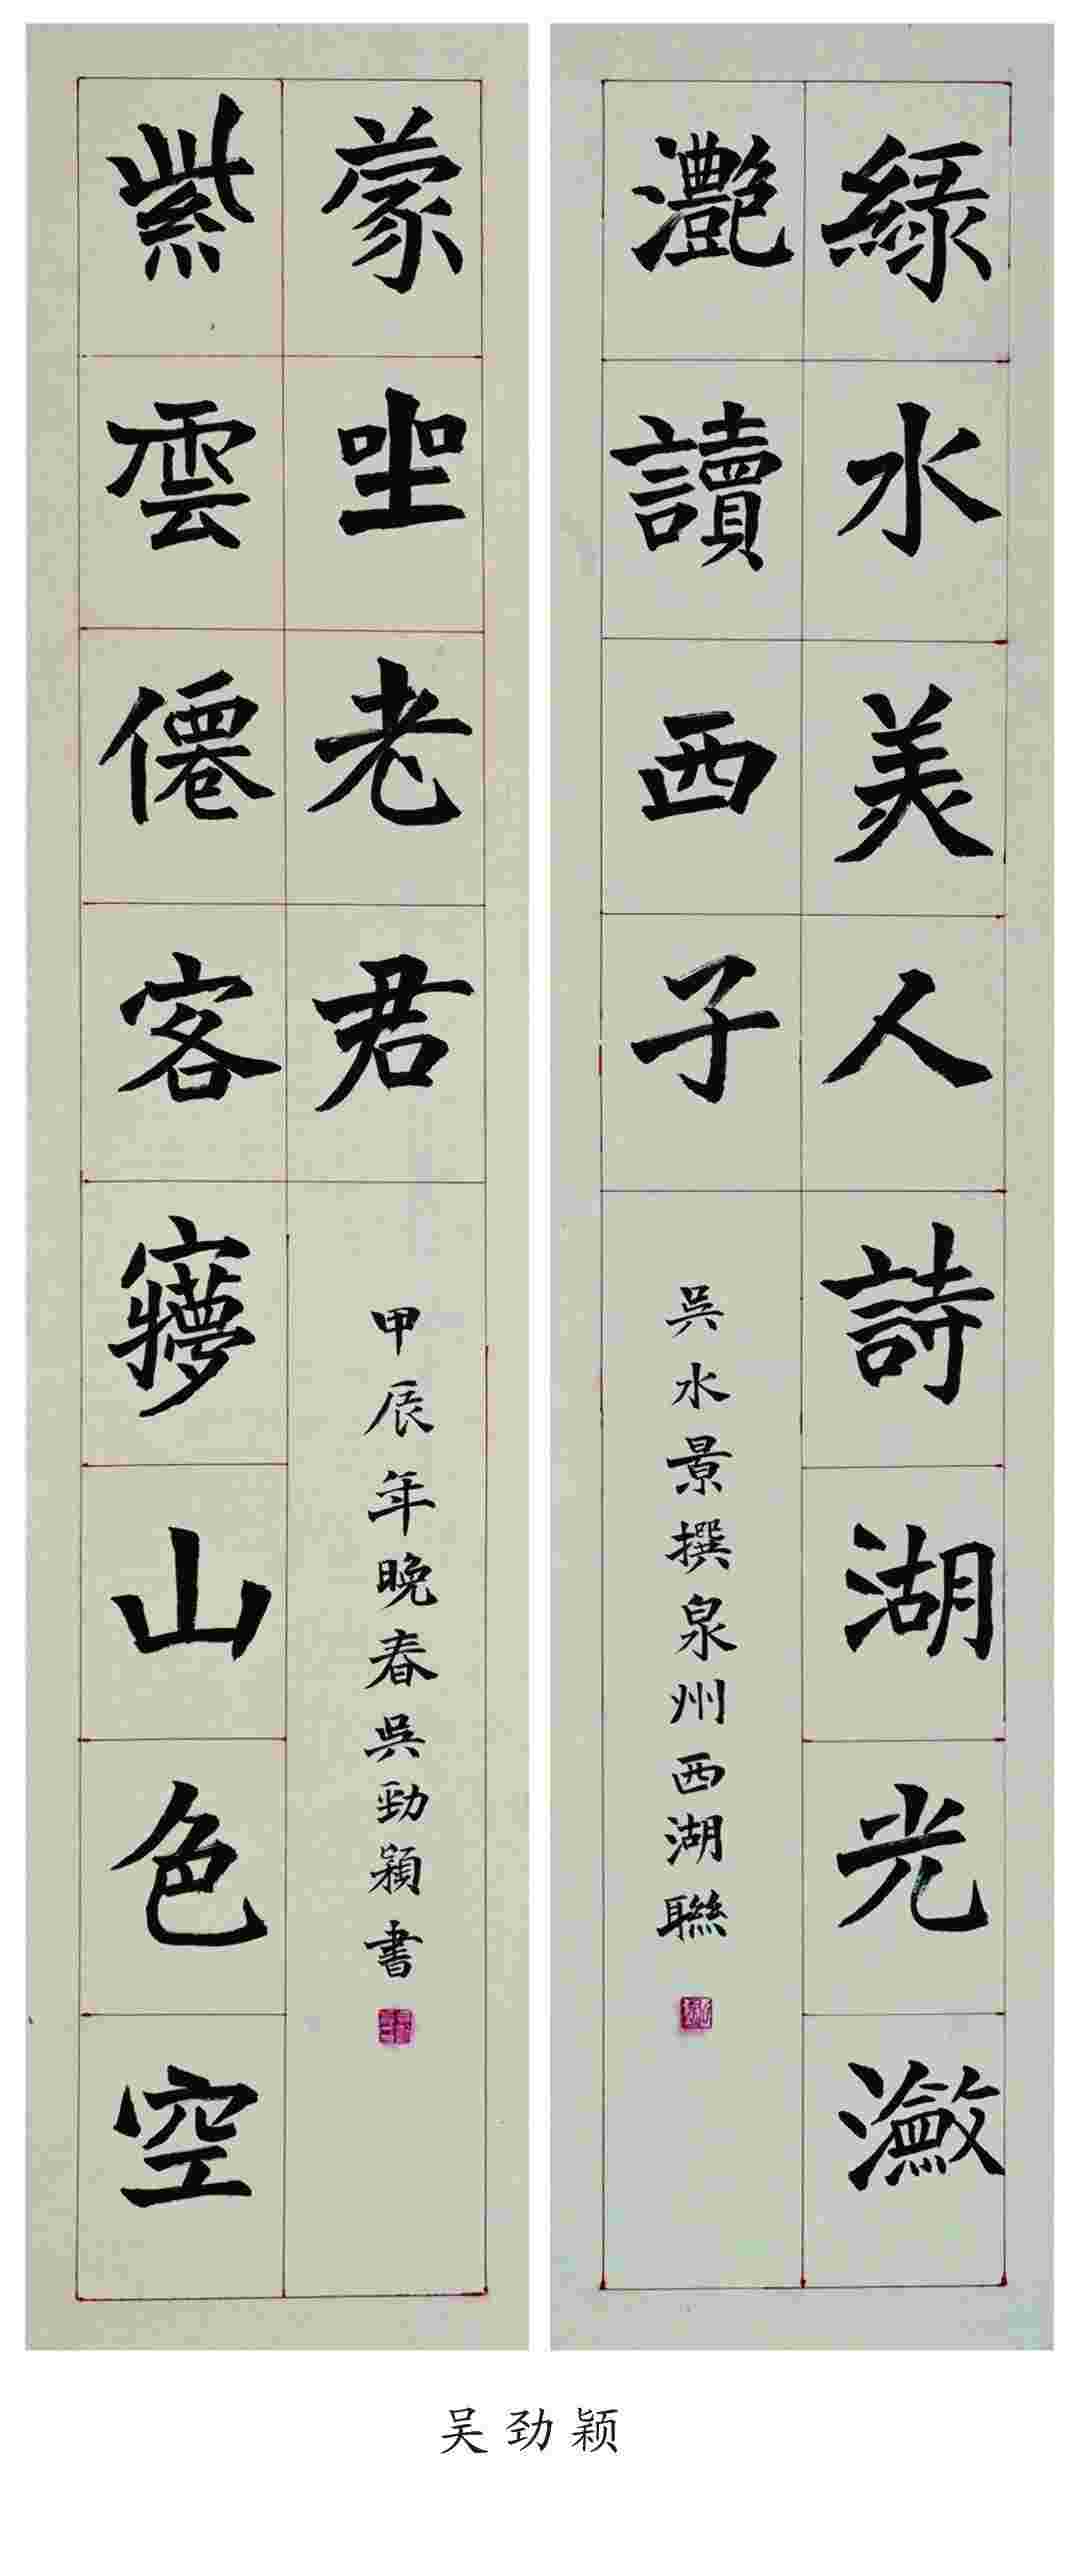 綠水美人詩湖光瀲
灧讀西子
吳水景撰泉州西湖聯
紫雲僊客㝱山色空
蒙㘸老君
甲辰年晚春吳勁穎書
吴劲颖